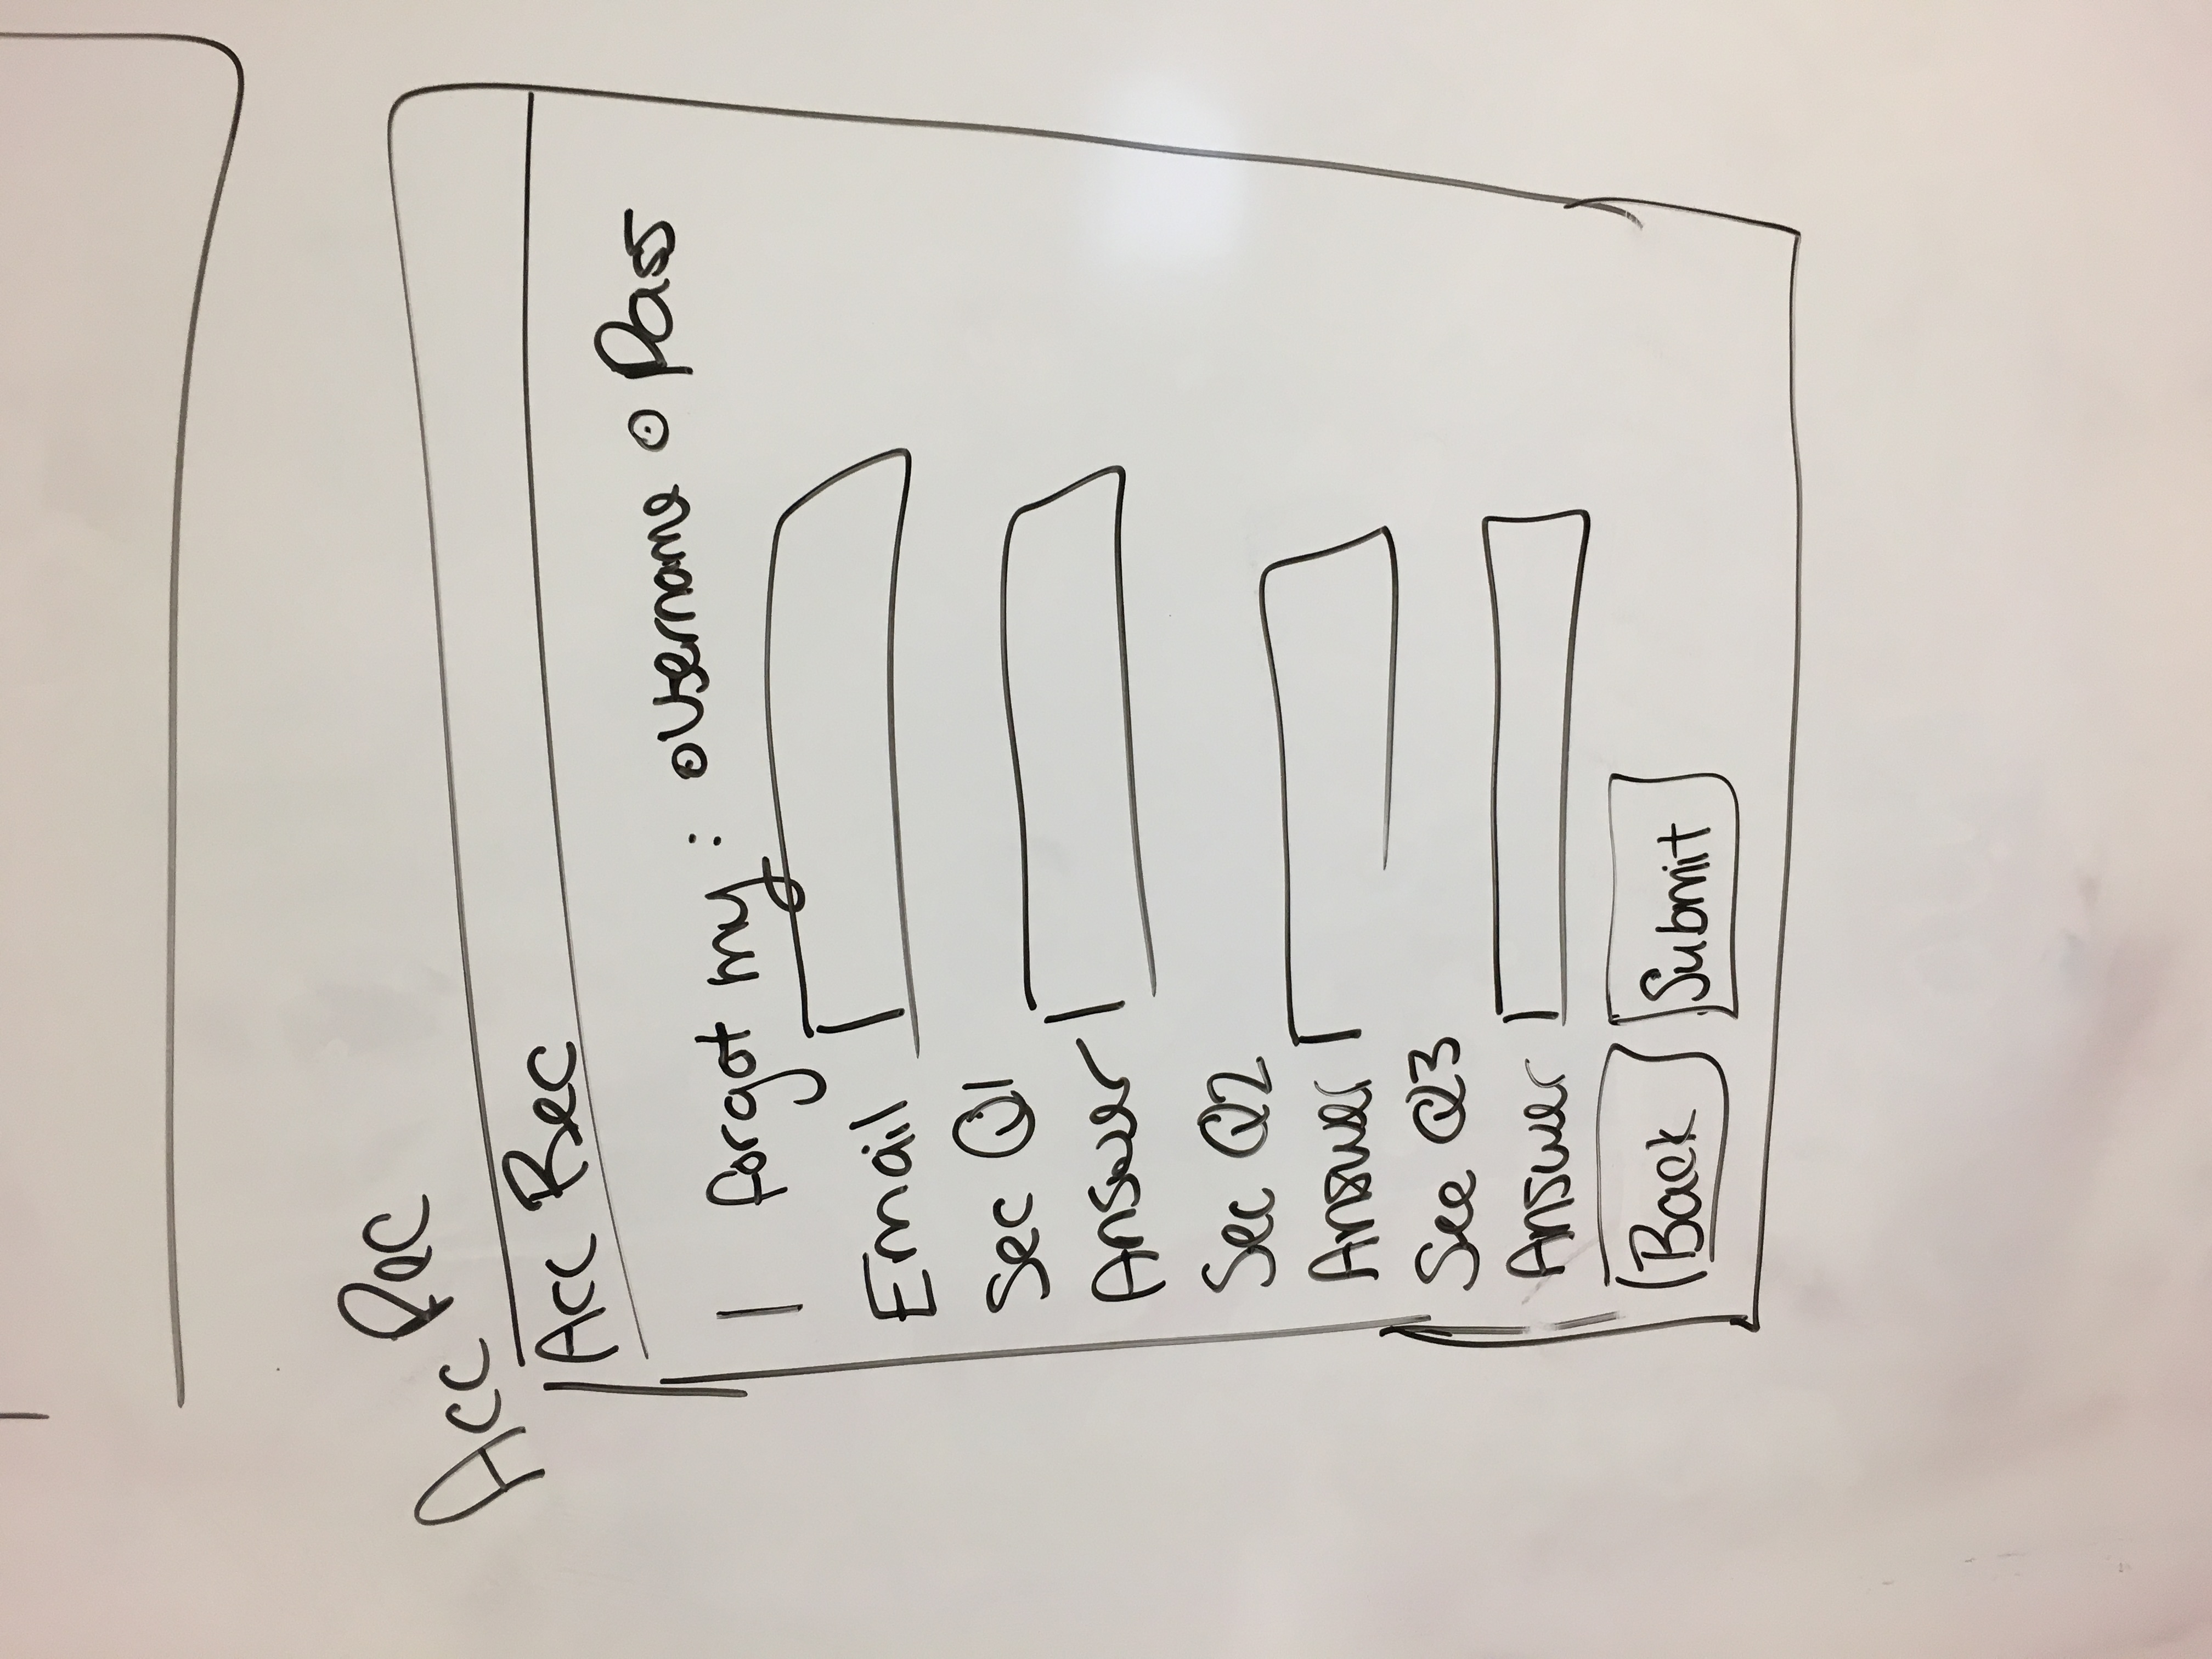 Acc Rec
Acc Rec
I forgot my: Username Pass
Email
Sec Q1
Answer
Sec Q2
Answer
Sec Q3
Answer
Back Submit